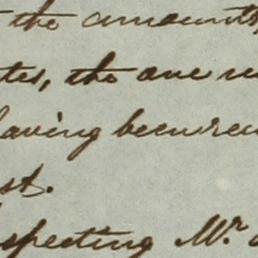 the amounts,
tes, the one re
having been rec
st.
specting Mr.